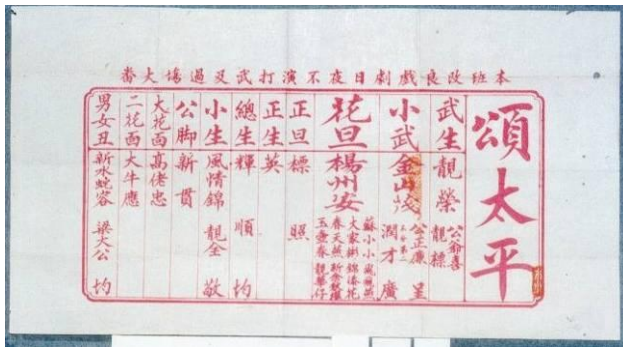 本班改良戲劇日夜不演打武及過場大番
頌太平
武生 靚榮 公爺喜 靚標
小武 金山茂 公正廉 潤才 呈廣
花旦 楊州安 蘇小小 大家彬 錦滿花 春天燕 玉壺春 靚華仔
正旦 標照
正生 英
總生 輝順均
小生 風情錦 靚全敬
公脚 新貫
大花面 高佬忠
二花面 大牛應
男女丑 新水蛇容 梁大公 均